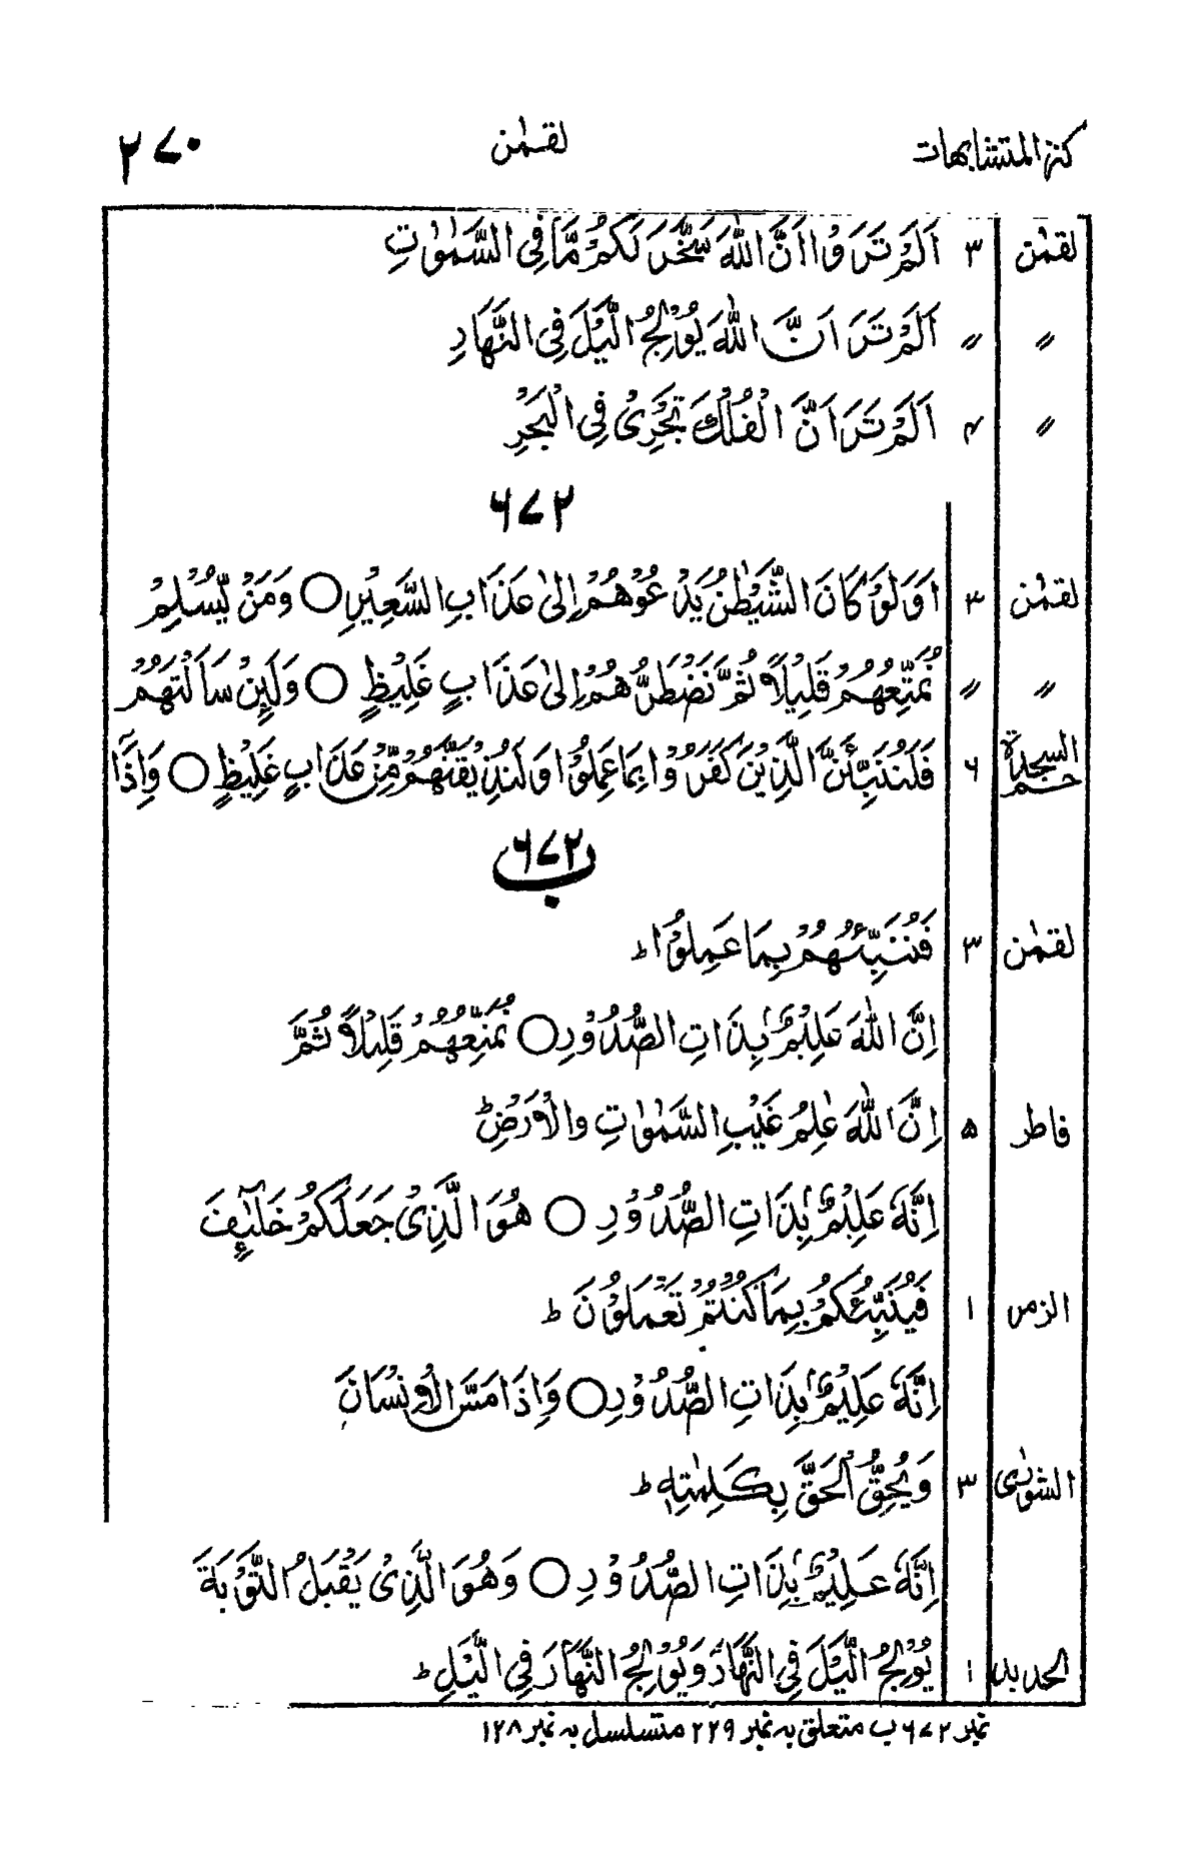 كنز المتشابهات لقمٰن ۲۷۰
لقمٰن ۳ اَلَمْ تَرَوْا اَنَّ اللّٰهَ سَخَّرَ لَكُمْ مَّا فِی السَّمٰوٰتِ
〃 〃 اَلَمْ تَرَ اَنَّ اللّٰهَ یُوْلِجُ الَّیْلَ فِی النَّهَارِ
〃 ۴ اَلَمْ تَرَ اَنَّ الْفُلْكَ تَجْرِیْ فِی الْبَحْرِ
۶۷۲
لقمٰن ۳ اَوَلَوْ كَانَ الشَّیْطٰنُ یَدْعُوْهُمْ اِلٰی عَذَابِ السَّعِیْرِ ○ وَمَنْ یُّسْلِمْ
〃 〃 نُمَتِّعُهُمْ قَلِیْلًا ثُمَّ نَضْطَرُّهُمْ اِلٰی عَذَابٍ غَلِیْظٍ ○ وَلَئِنْ سَاَلْتَهُمْ
حٰم السجدة ۶ فَلَنُنَبِّئَنَّ الَّذِیْنَ كَفَرُوْا بِمَا عَمِلُوْا وَلَنُذِیْقَنَّهُمْ مِّنْ عَذَابٍ غَلِیْظٍ ○ وَاِذَآ
۶۷۲ب
لقمٰن ۳ فَنُنَبِّئُهُمْ بِمَا عَمِلُوْا ؕ
اِنَّ اللّٰهَ عَلِیْمٌۢ بِذَاتِ الصُّدُوْرِ ○ نُمَتِّعُهُمْ قَلِیْلًا ثُمَّ
فاطر ۵ اِنَّ اللّٰهَ عٰلِمُ غَیْبِ السَّمٰوٰتِ وَالْاَرْضِ ؕ
اِنَّهٗ عَلِیْمٌۢ بِذَاتِ الصُّدُوْرِ ○ هُوَ الَّذِیْ جَعَلَكُمْ خَلٰٓئِفَ
الزمر ۱ فَیُنَبِّئُكُمْ بِمَا كُنْتُمْ تَعْمَلُوْنَ ؕ
اِنَّهٗ عَلِیْمٌۢ بِذَاتِ الصُّدُوْرِ ○ وَاِذَا مَسَّ الْاِنْسَانَ
الشورٰی ۳ وَیُحِقُّ الْحَقَّ بِكَلِمٰتِهٖ ؕ
اِنَّهٗ عَلِیْمٌۢ بِذَاتِ الصُّدُوْرِ ○ وَهُوَ الَّذِیْ یَقْبَلُ التَّوْبَةَ
الحديد ۱ یُوْلِجُ الَّیْلَ فِی النَّهَارِ وَیُوْلِجُ النَّهَارَ فِی الَّیْلِ ؕ
نمبر ۶۷۲ب متعلق به نمبر ۲۲۹ متسلسل به نمبر ۱۲۸